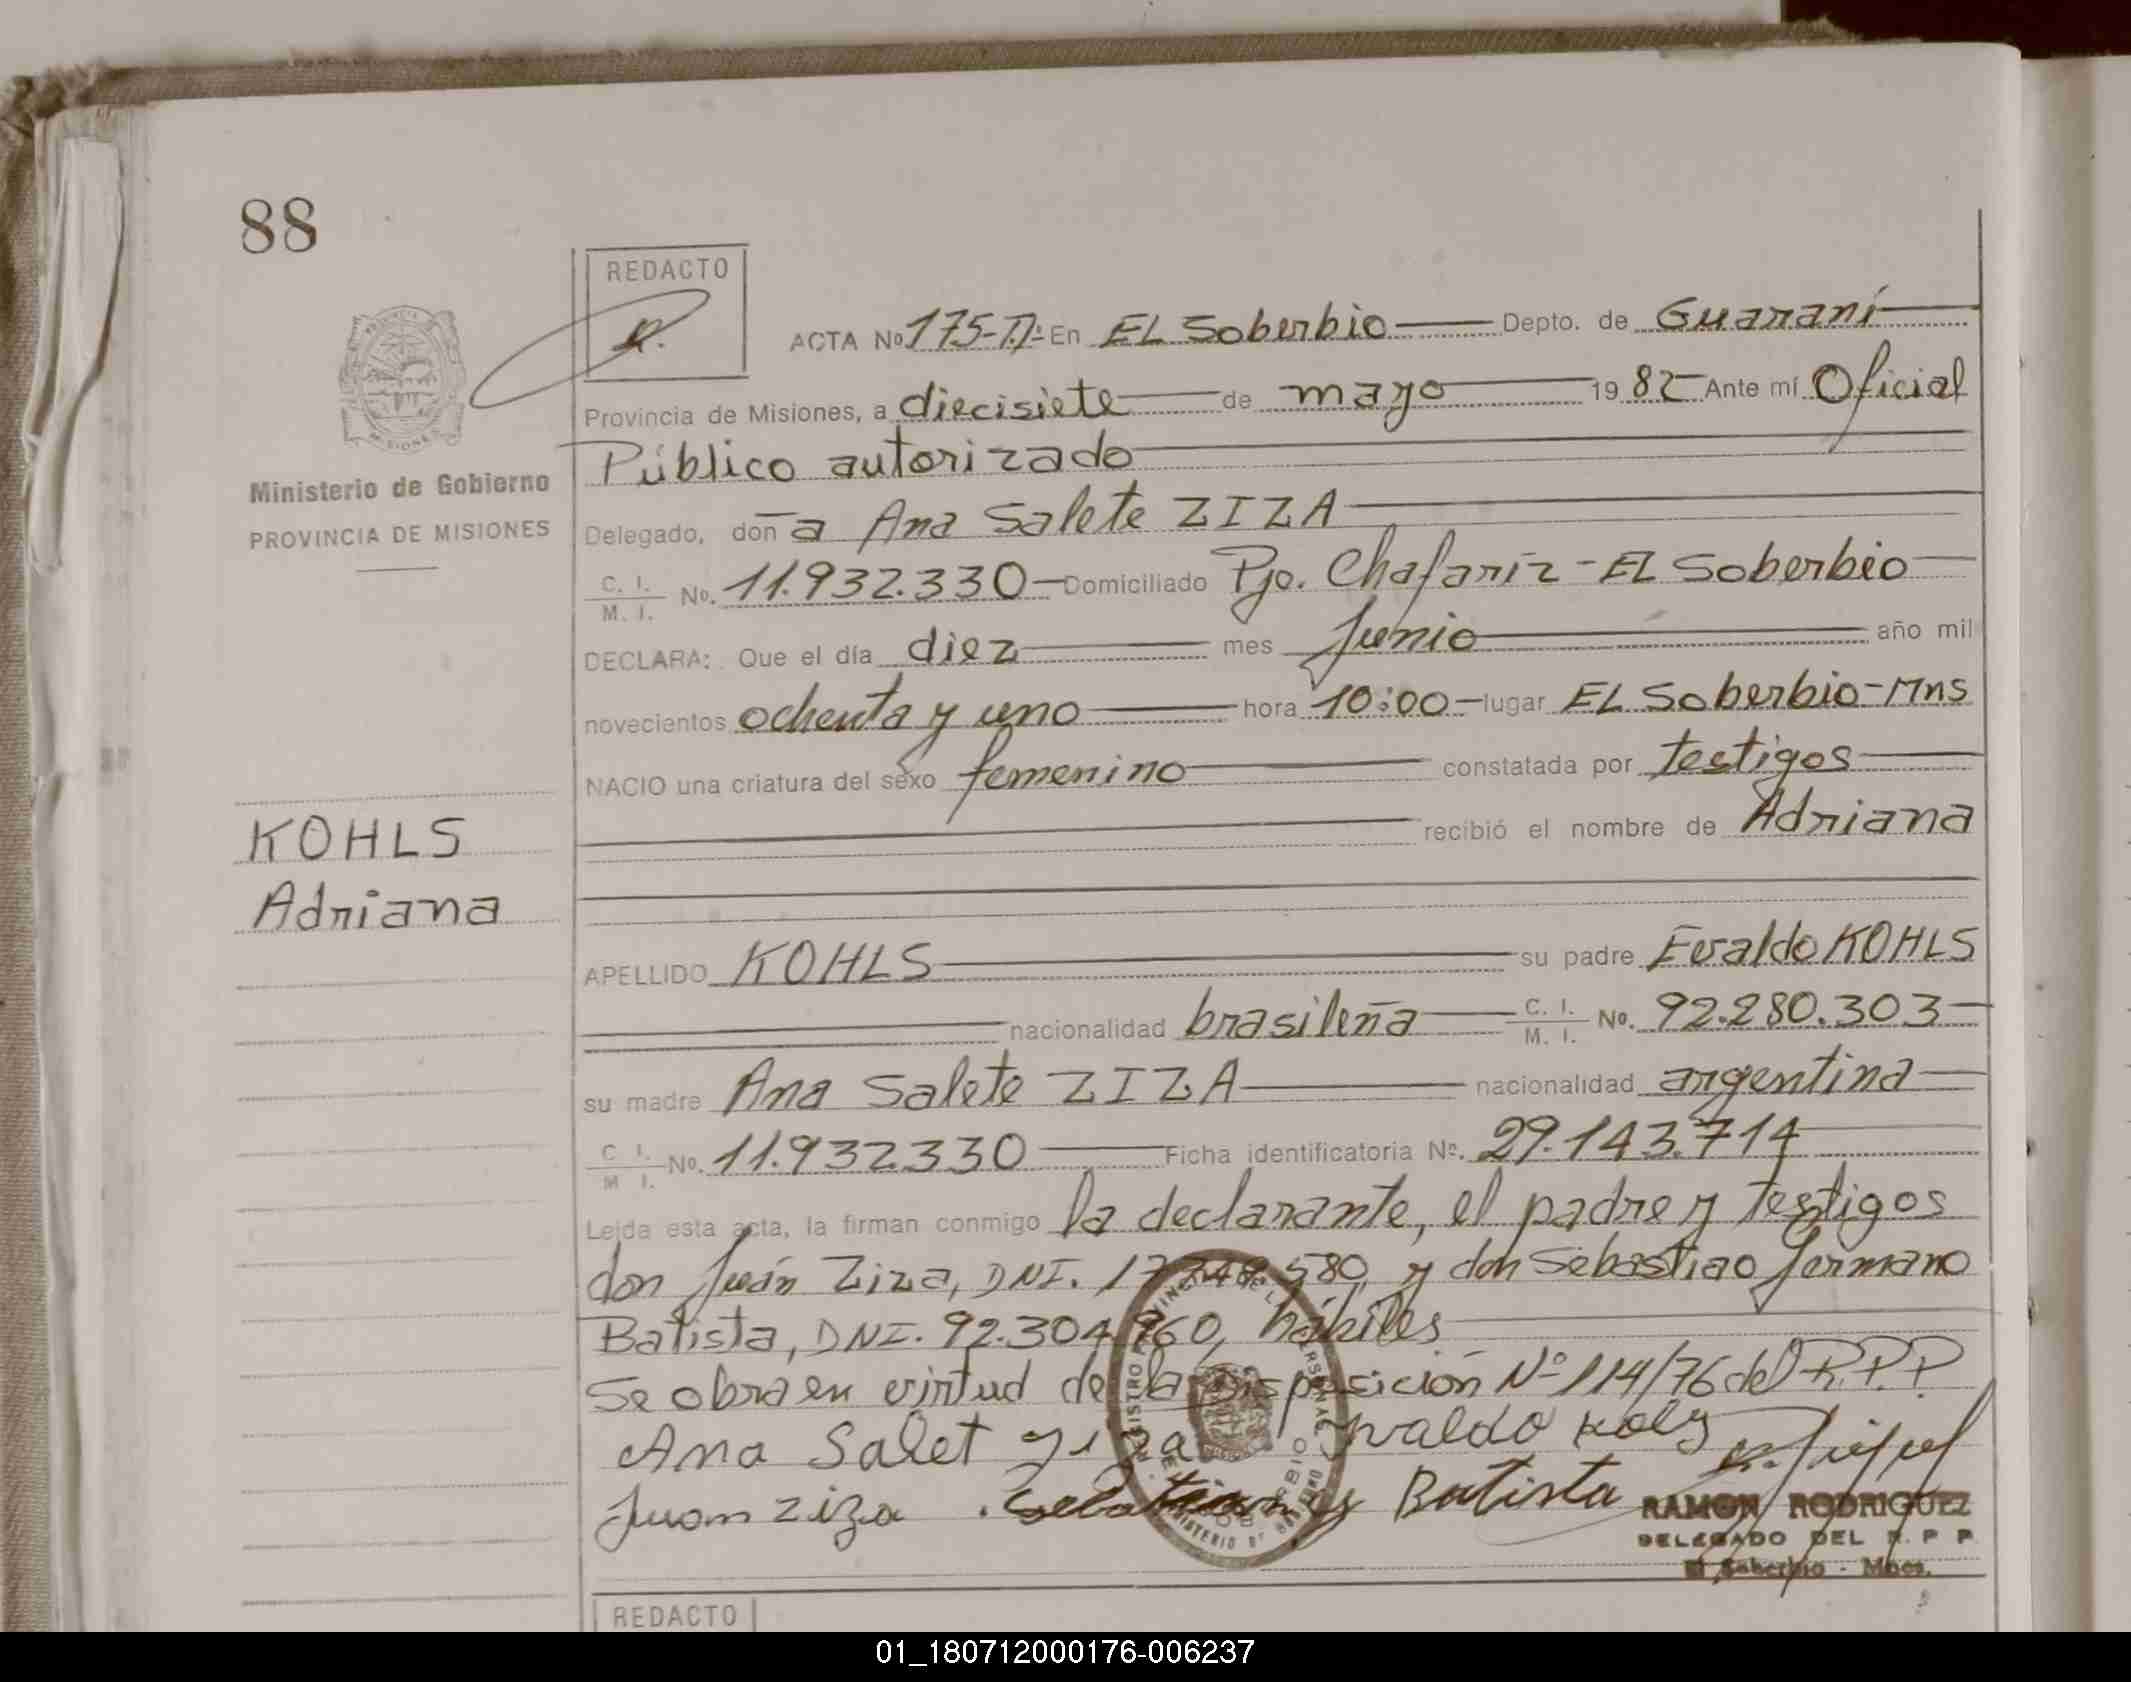 88
REDACTO
R.
ACTA Nº 175-T.D: En EL Soberbio Depto. de Guaraní
Provincia de Misiones, a diecisiete de mayo 1982 Ante mí Oficial
Público autorizado
Ministerio de Gobierno
PROVINCIA DE MISIONES
Delegado, don a Ana Salete ZIZA
C. I. M. I. No. 11.932.330 Domiciliado Pje. Chafariz - EL Soberbio
DECLARA: Que el día diez mes Junio año mil
novecientos ochenta y uno hora 10:00 lugar EL Soberbio-Mns
NACIO una criatura del sexo femenino constatada por testigos
recibió el nombre de Adriana
KOHLS
Adriana
APELLIDO KOHLS su padre Evaldo KOHLS
nacionalidad brasileña C. I. M. I. No. 92.280.303
su madre Ana Salete ZIZA nacionalidad argentina
C. I. M. I. No. 11.932.330 Ficha identificatoria Nº. 29.143.714
Leida esta acta, la firman conmigo la declarante, el padre y testigos
don Juán Ziza, DNI. y don Sebastiao Jermano
Batista, DNI. 92.304.960, hábiles
Se obra en virtud de la Disposición Nº 114/76 del R.P.P.
Ana Salet ziza Ivaldo Kols
Juan ziza Batista
RAMON RODRIGUEZ
DELEGADO DEL R. P P
El Soberbio - Mnes.
REDACTO
01_180712000176-006237